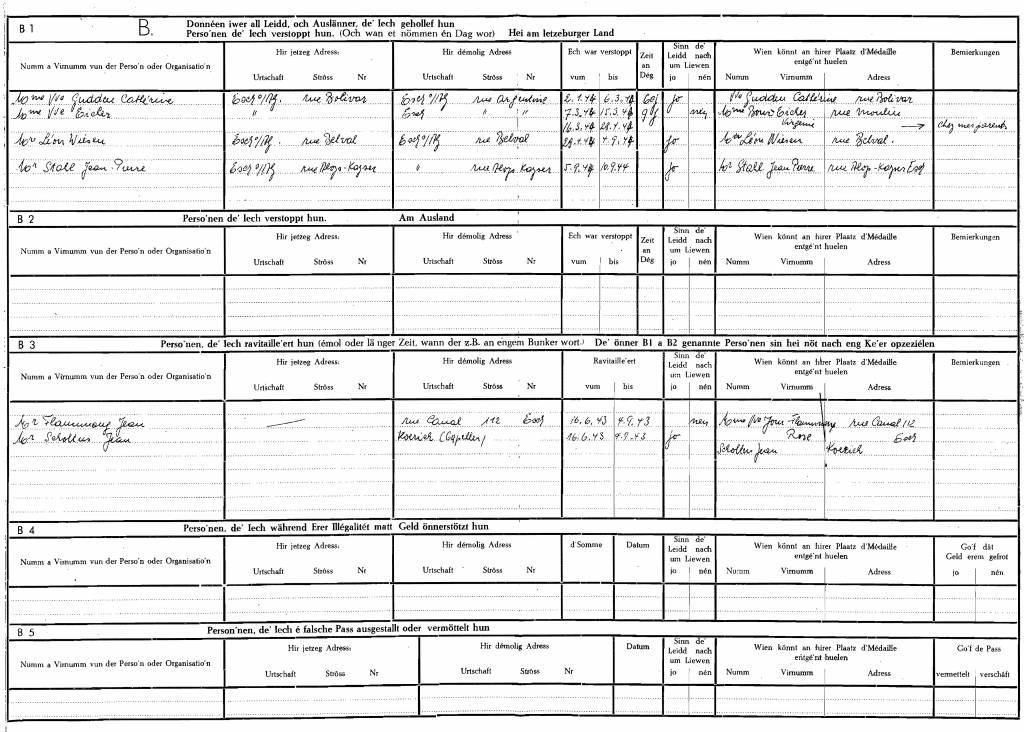 B 1 B. Donnéen iwer all Leidd, och Auslänner, de' Iech gehollef hun
Perso'nen de' Iech verstoppt hun. (Och wan et nömmen én Dag wor) Hei am letzeburger Land
Numm a Virnumm vun der Perso'n oder Organisatio'n
Hir jetzeg Adress:
Urtschaft Ströss Nr
Hir démolig Adress
Urtschaft Ströss Nr
Ech war verstoppt
vum bis
Zeit
an
Dég
Sinn de'
Leidd nach
um Liewen
jo nén
Wien könnt an hirer Plaatz d'Médaille
entgé'nt huelen
Numm Virnumm Adress
Bemierkungen
Mme Vve Gudden Cathérine Esch s/Alz. rue Bolivar Esch s/Alz rue Argentine 2.1.44 6.3.44 jo Vve Gudden Cathérine rue Bolivar
Mme Vve Eicher " Esch " " 7.3.44 15.3.44 nen Mme Bour Eicher rue moulin
Virginie
16.3.44 28.4.44 → chez mes parents
Mr Léon Wiesen Esch s/Alz rue Belval Esch s/Alz rue Belval 29.4.44 4.9.44 jo Mr Léon Wiesen rue Belval.
Mr Stall Jean-Pierre Esch s/Alz rue Aloys-Kayser " rue Aloys-Kayser 5.9.44 10.9.44 jo Mr Stall Jean Pierre rue Aloys-Kayser Esch
B 2 Perso'nen de' Iech verstoppt hun. Am Ausland
Numm a Virnumm vun der Perso'n oder Organisatio'n
Hir jetzeg Adress:
Urtschaft Ströss Nr
Hir démolig Adress
Urtschaft Ströss Nr
Ech war verstoppt
vum bis
Zeit
an
Dég
Sinn de'
Leidd nach
um Liewen
jo nén
Wien könnt an hirer Plaatz d'Médaille
entgé'nt huelen
Numm Virnumm Adress
Bemierkungen
B 3 Perso'nen, de' Iech ravitaille'ert hun (émol oder länger Zeit, wann der z.B. an engem Bunker wort.) De' önner B1 a B2 genannte Perso'nen sin hei nöt nach eng Ke'er opzeziélen
Numm a Virnumm vun der Perso'n oder Organisatio'n
Hir jetzeg Adress:
Urtschaft Ströss Nr
Hir démolig Adress
Urtschaft Ströss Nr
Ravitaille'ert
vum bis
Sinn de'
Leidd nach
um Liewen
jo nén
Wien könnt an hirer Plaatz d'Médaille
entgé'nt huelen
Numm Virnumm Adress
Bemierkungen
Mr Flammang Jean — rue Canal 112 Esch 16.6.43 4.9.43 nen Mme Vve Jean Flammang rue Canal 112
Mr Scholtus Jean Koerich (Capellen) 16.6.43 4.9.43 jo Rose Esch
Scholtus Jean Koerich
B 4 Perso'nen, de' Iech während Erer Illégalitét matt Geld önnerstötzt hun
Numm a Virnumm vun der Perso'n oder Organisatio'n
Hir jetzeg Adress:
Urtschaft Ströss Nr
Hir démolig Adress
Urtschaft Ströss Nr
d'Somme
Datum
Sinn de'
Leidd nach
um Liewen
jo nén
Wien könnt an hirer Plaatz d'Médaille
entgé'nt huelen
Numm Virnumm Adress
Go'f dât
Geld erem gefrot
jo nén
B 5 Person'nen, de' Iech é falsche Pass ausgestallt oder vermöttelt hun
Numm a Virnumm vun der Perso'n oder Organisatio'n
Hir jetzeg Adress:
Urtschaft Ströss Nr
Hir démolig Adress
Urtschaft Ströss Nr
Datum
Sinn de'
Leidd nach
um Liewen
jo nén
Wien könnt an hirer Plaatz d'Médaille
entgé'nt huelen
Numm Virnumm Adress
Go'f de Pass
vermettelt verschâft